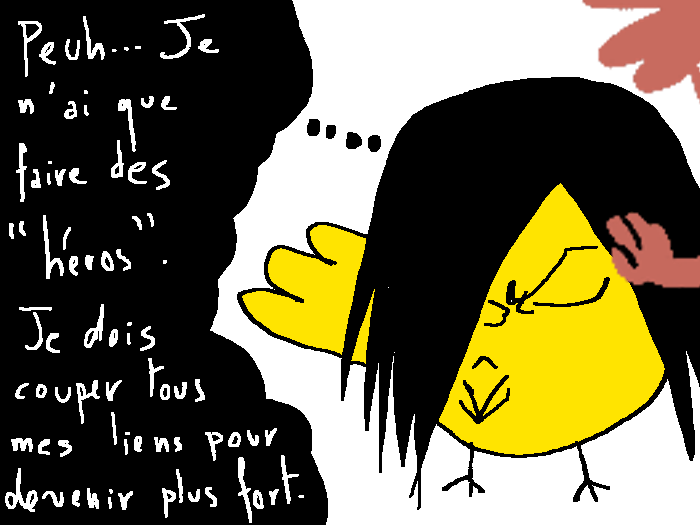 Peuh... Je
n'ai que
faire des
"héros".
Je dois
couper tous
mes liens pour
devenir plus fort.
....